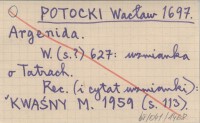 POTOCKI Wacław 1697.
Argenida.
W. (s.?) 627: wzmianka
o Tatrach.
Rec. (i cytat wzmianki):
KWAŚNY M. 1959 (s. 113).